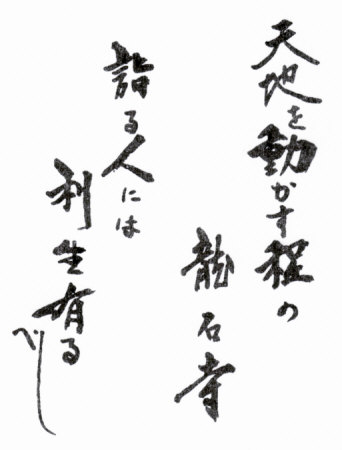 天地を動かす程の
龍石寺
詣る人には
利生有る
べし